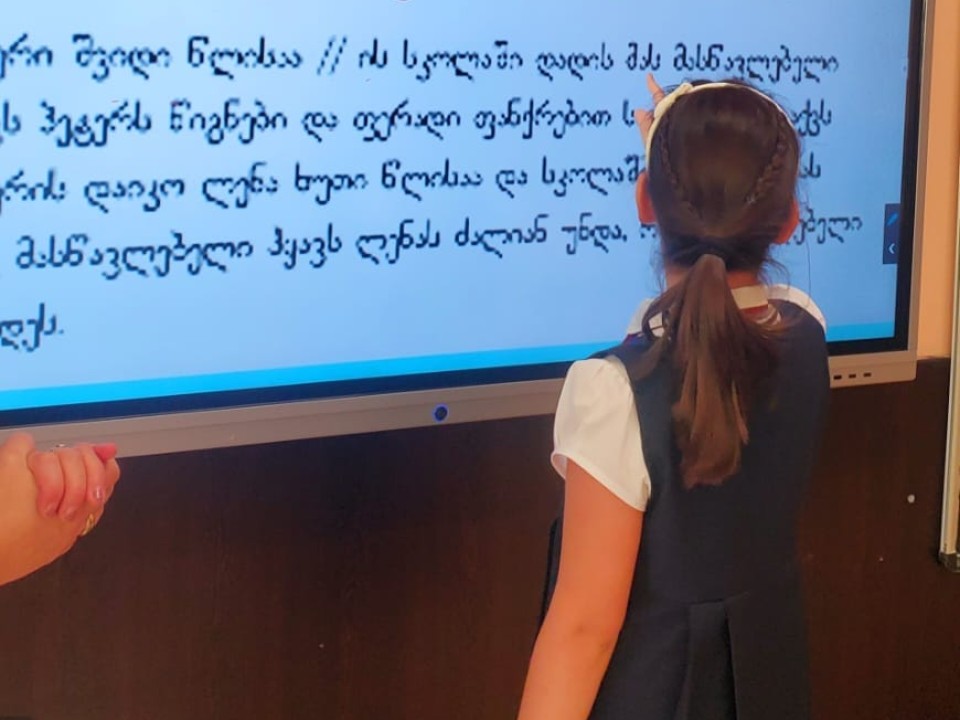 შვიდი წლისაა // ის სკოლაში დადის მას მასწავლებელი
ჰეტერს წიგნები და ფერადი ფანქრებით
დაიკო ლენა ხუთი წლისაა და
მასწავლებელი ჰყავს ლენას ძალიან უნდა,